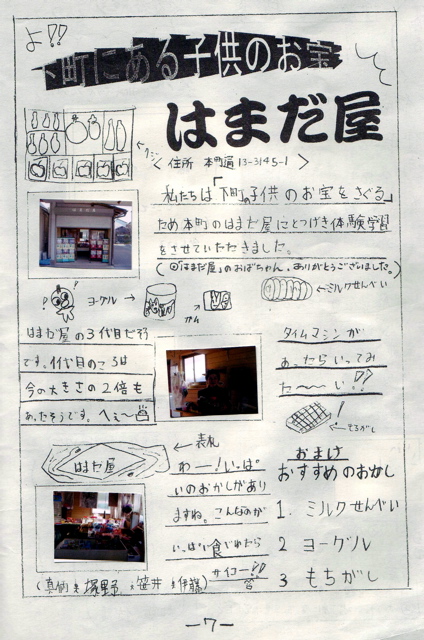 よ!!
下町にある子供のお宝
はまだ屋
住所 本町通13-3145-1
私たちは「下町の子供のお宝をさぐる」
ため本町のはまだ屋にとつげき体験学習
をさせていただきました。
(@「はまだ屋」のおばちゃん、ありがとうございました。)
ヨーグル
ガム
ミルクせんべい
はまだ屋の3代目だそう
です。1代目のころは
今の大きさの2倍も
あったそうです。へぇ〜
タイムマシンが
あったらいってみ
た〜〜い!!
表札
はまだ屋
わー!いっぱ
いのおかしがあり
ますね。こんなのが
いっぱい食べれたら
サイコー!!
おまけ
おすすめのおかし
1. ミルクせんべい
2 ヨーグル
3 もちがし
塚野 笹井 伊藤
―7―